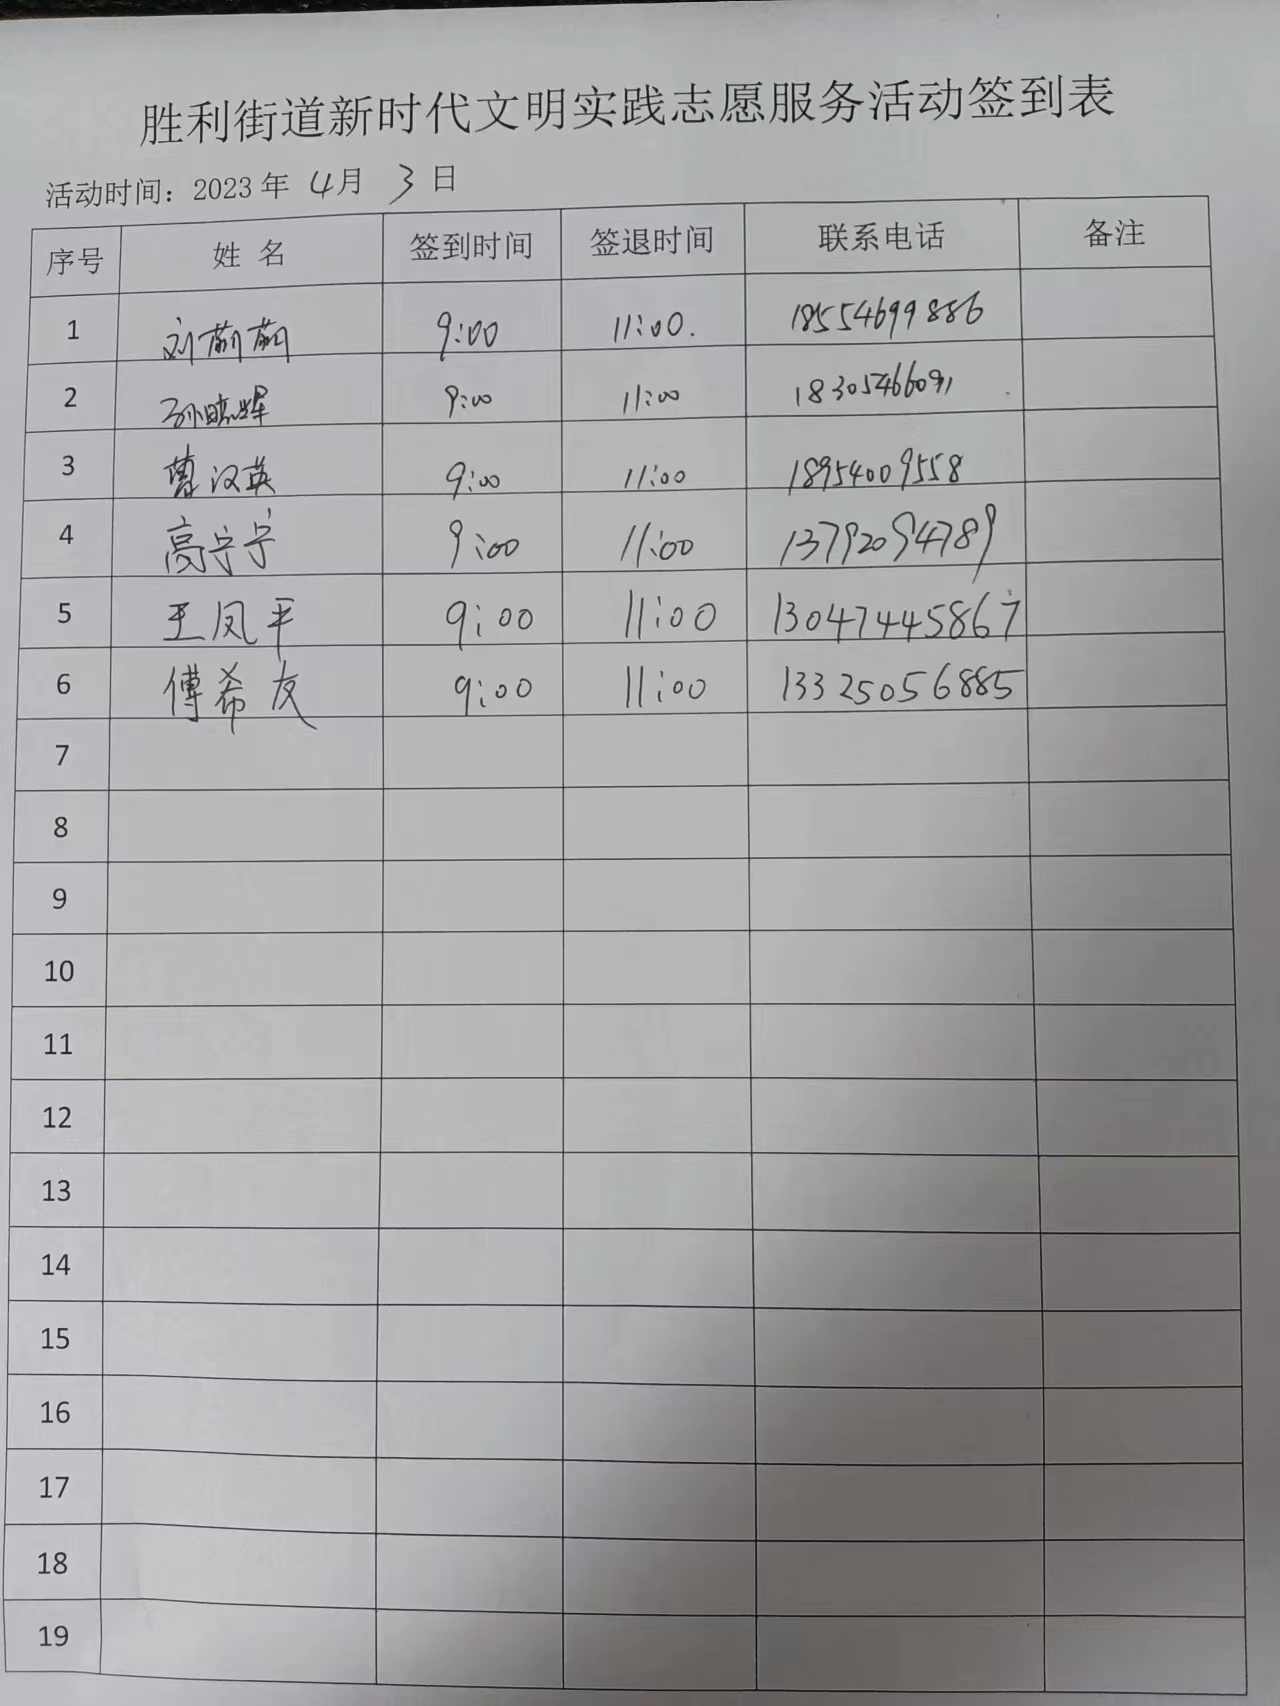 胜利街道新时代文明实践志愿服务活动签到表
活动时间：2023 年 4月 3 日
序号 姓 名 签到时间 签退时间 联系电话 备注
1 刘 9:00 11:00. 18554699886
2 孙 9:00 11:00 18305466091
3 曹汉英 9:00 11:00 18954009558
4 高宁宁 9:00 11:00 13792094789
5 王凤平 9:00 11:00 13047445867
6 傅希友 9:00 11:00 13325056885
7
8
9
10
11
12
13
14
15
16
17
18
19